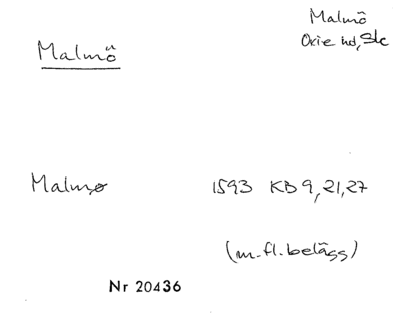 Malmö
Malmö
Oxie hd, Sk
Malmø 1593 KB 9, 21, 27
(m.fl. belägg)
Nr 20436